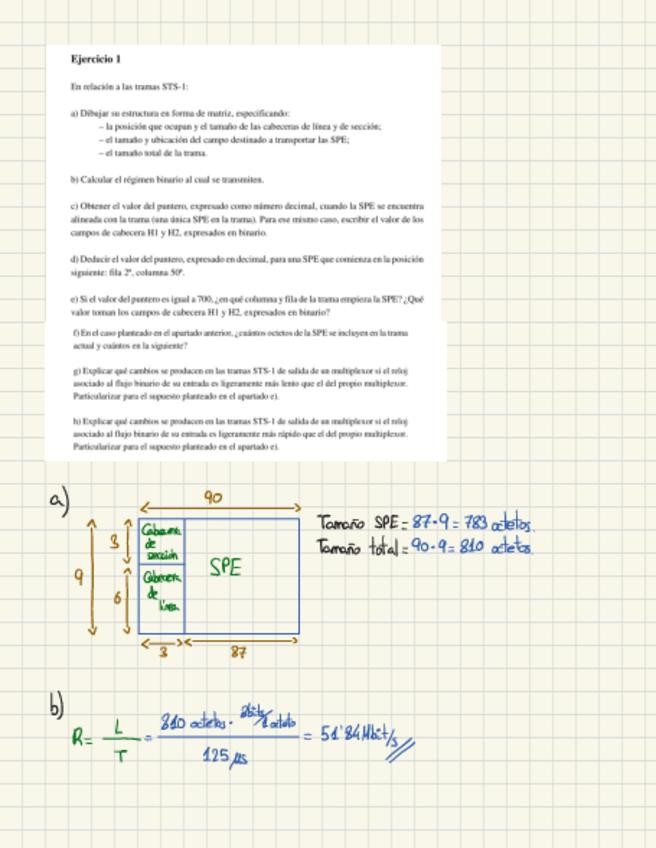 Ejercicio 1
En relación a las tramas STS-1:
a) Dibujar su estructura en forma de matriz, especificando:
– la posición que ocupan y el tamaño de las cabeceras de línea y de sección;
– el tamaño y ubicación del campo destinado a transportar las SPE;
– el tamaño total de la trama.
b) Calcular el régimen binario al cual se transmiten.
c) Obtener el valor del puntero, expresado como número decimal, cuando la SPE se encuentra
alineada con la trama (una única SPE en la trama). Para ese mismo caso, escribir el valor de los
campos de cabecera H1 y H2, expresados en binario.
d) Deducir el valor del puntero, expresado en decimal, para una SPE que comienza en la posición
siguiente: fila 2ª, columna 50ª.
e) Si el valor del puntero es igual a 700, ¿en qué columna y fila de la trama empieza la SPE? ¿Qué
valor toman los campos de cabecera H1 y H2, expresados en binario?
f) En el caso planteado en el apartado anterior, ¿cuántos octetos de la SPE se incluyen en la trama
actual y cuántos en la siguiente?
g) Explicar qué cambios se producen en las tramas STS-1 de salida de un multiplexor si el reloj
asociado al flujo binario de su entrada es ligeramente más lento que el del propio multiplexor.
Particularizar para el supuesto planteado en el apartado e).
h) Explicar qué cambios se producen en las tramas STS-1 de salida de un multiplexor si el reloj
asociado al flujo binario de su entrada es ligeramente más rápido que el del propio multiplexor.
Particularizar para el supuesto planteado en el apartado e).
a)
90
Tamaño SPE = 87·9 = 783 octetos.
Tamaño total = 90·9 = 810 octetos.
9
3
Cabecera
de
sección
SPE
6
Cabecera
de
línea
3
87
b)
R = L/T = 810 octetos · 8bits/1 octeto / 125 µs = 51'84 Mbit/s